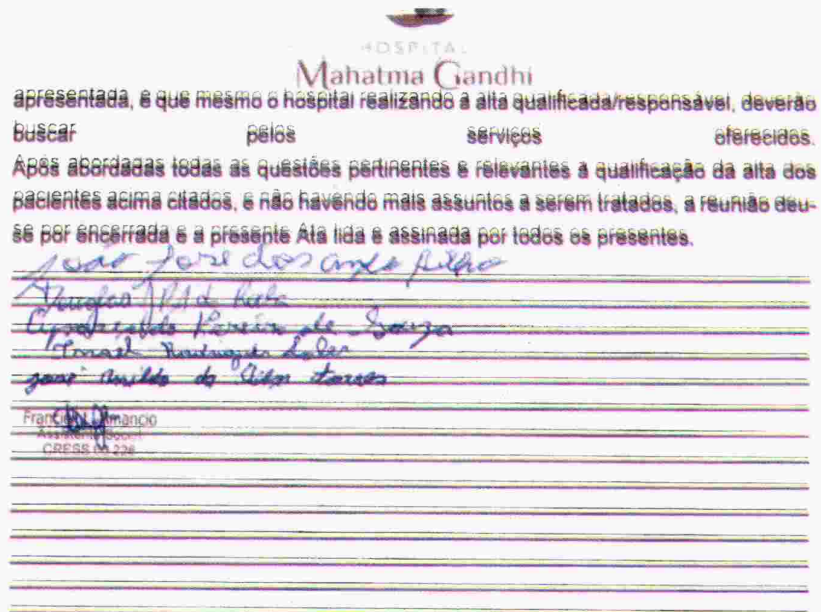 HOSPITAL
Mahatma Gandhi
apresentada, e que mesmo o hospital realizando a alta qualificada/responsável, deverão
buscar pelos serviços oferecidos.
Após abordadas todas as questões pertinentes e relevantes a qualificação da alta dos
pacientes acima citados, e não havendo mais assuntos a serem tratados, a reunião deu-
se por encerrada e a presente Ata lida e assinada por todos os presentes.
João José dos
Douglas
Pereira de Souza
Ismael Rodrigues
José da Silva
Amancio
Assistente Social
CRESS